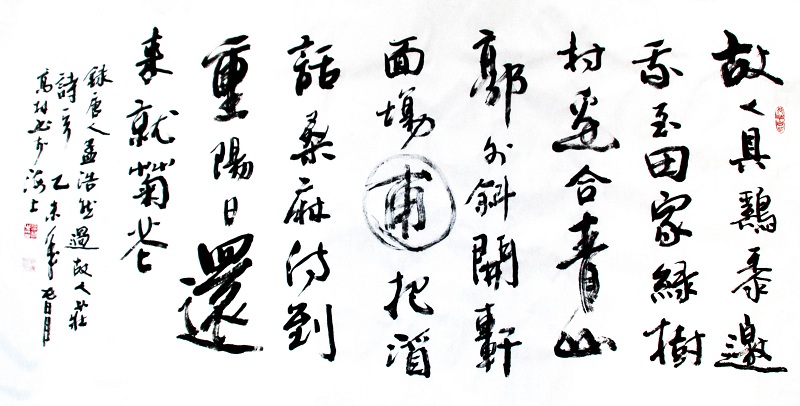 故人具鷄黍邀
我至田家綠樹
村邊合青山
郭外斜開軒
面場圃把酒
話桑麻待到
重陽日還
來就菊花
錄唐人孟浩然過故人莊
詩 乙未年
海上